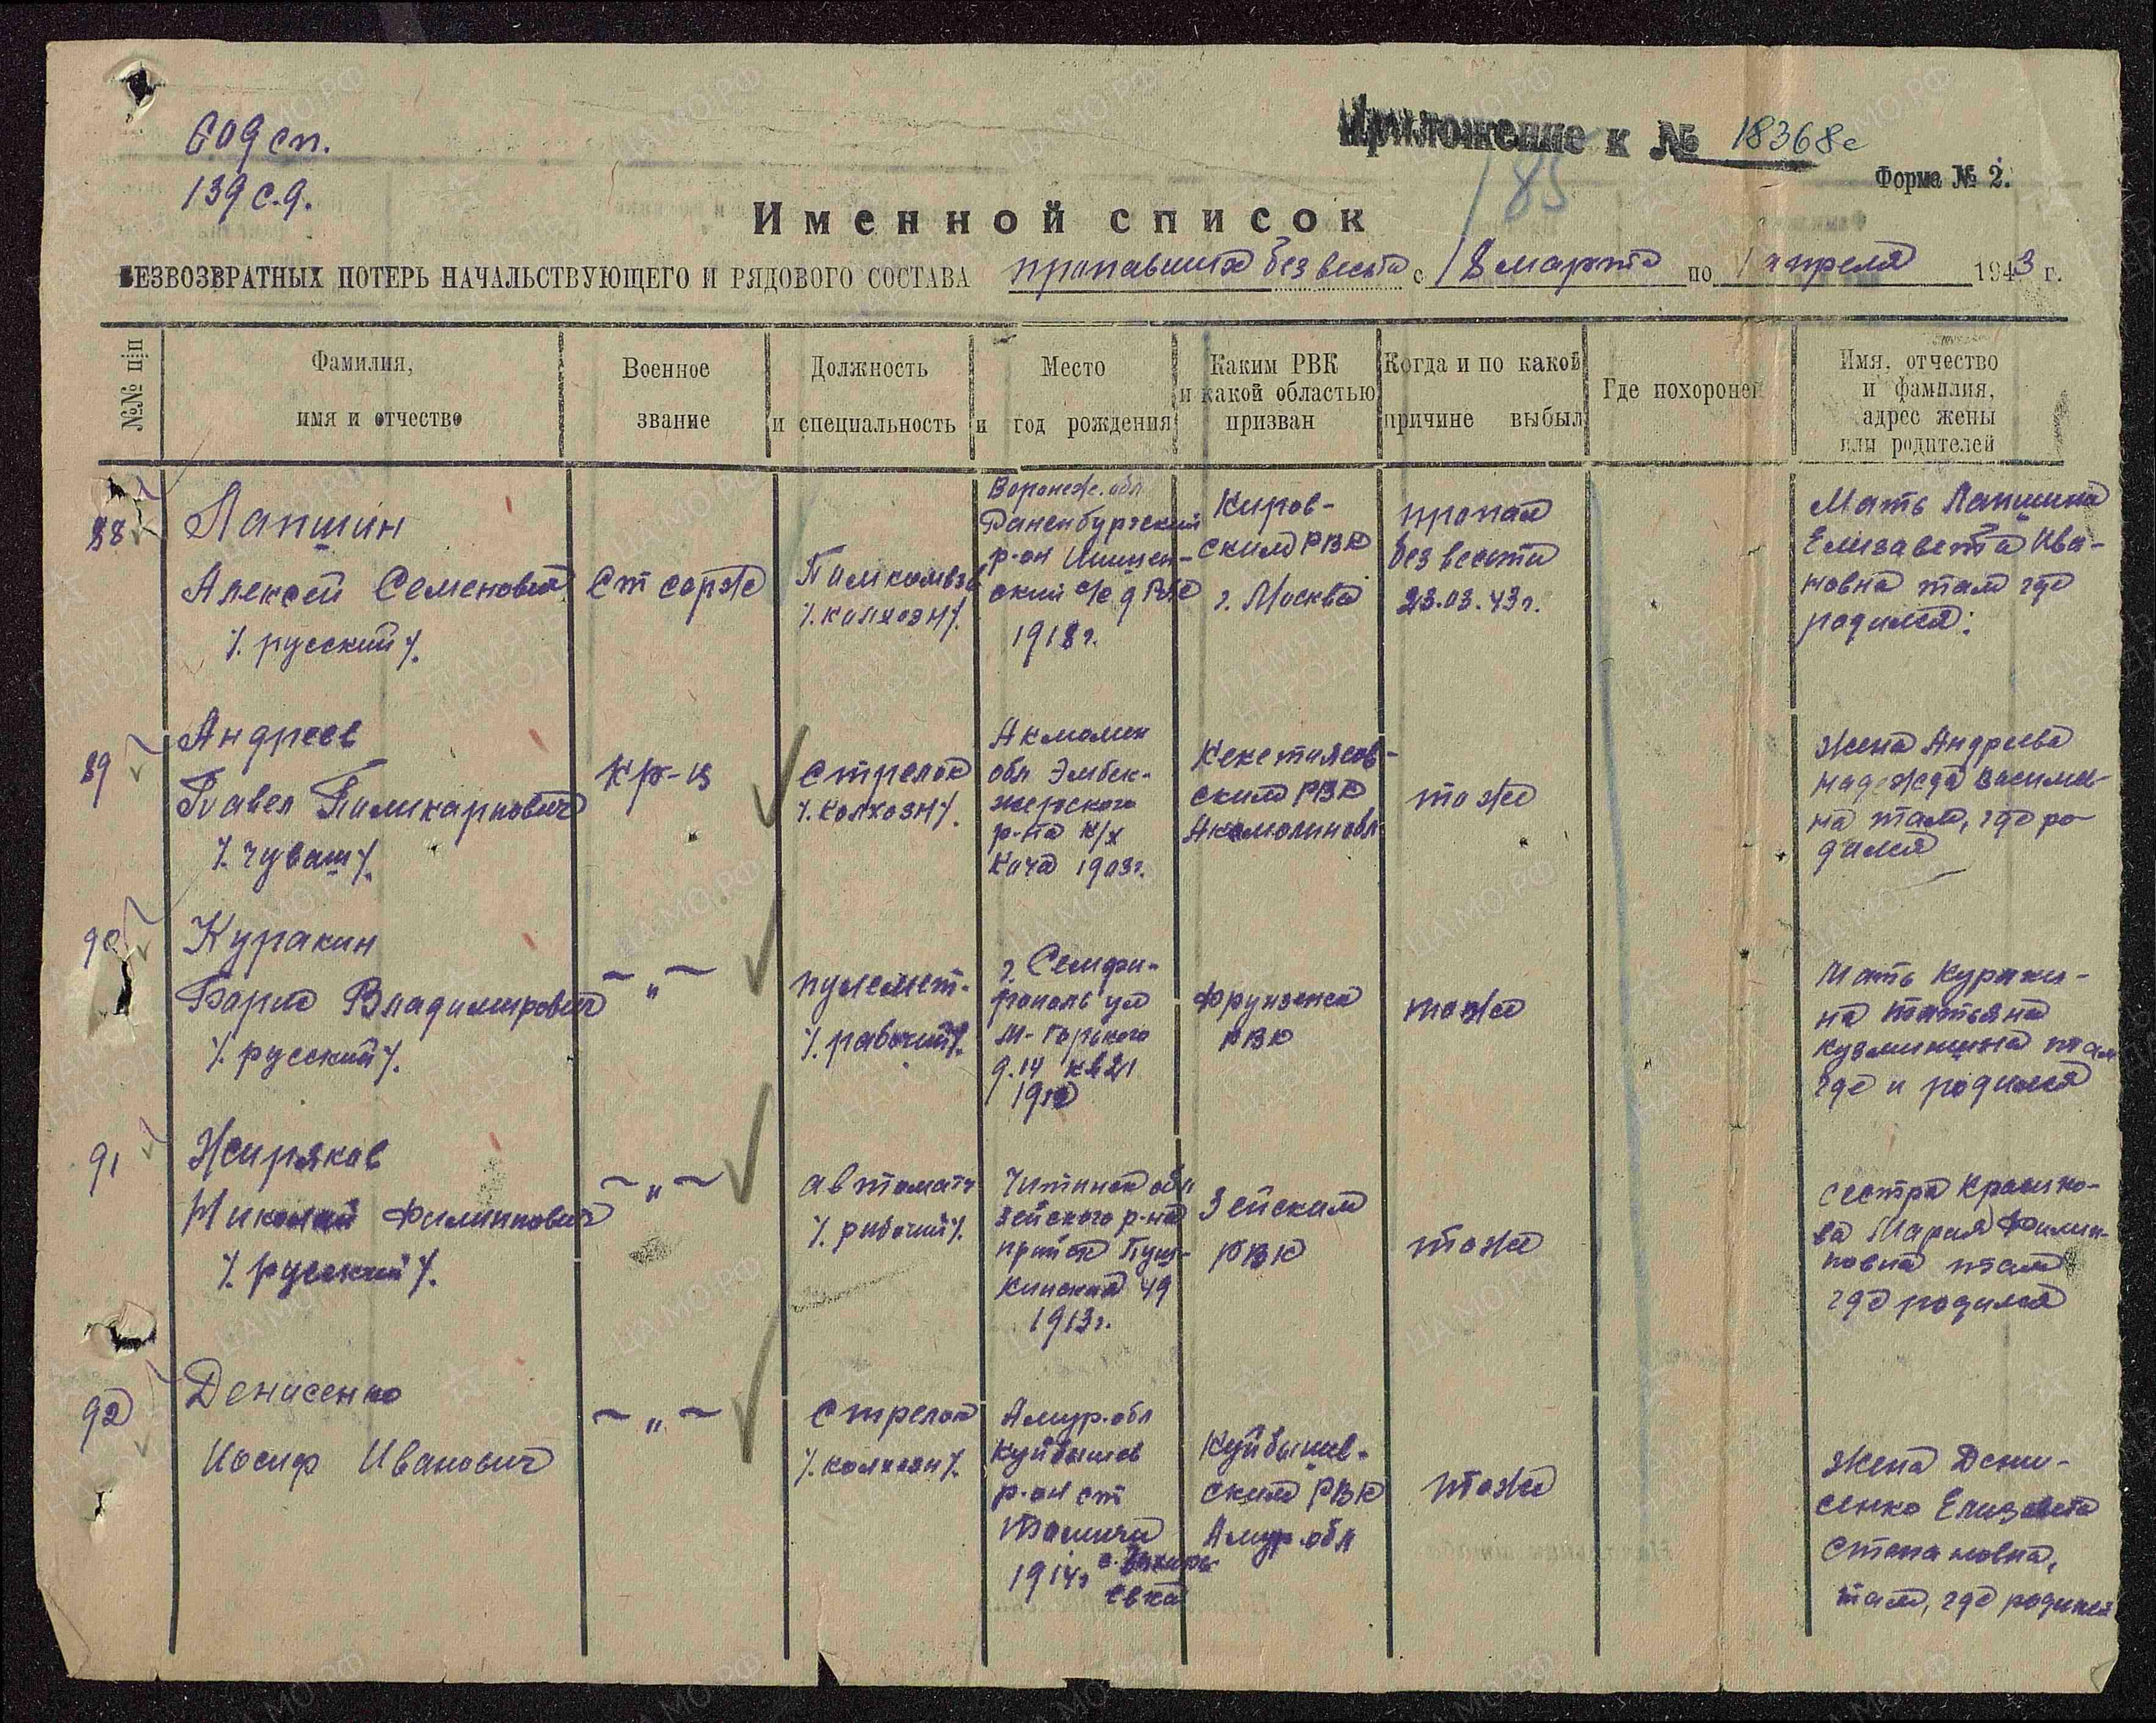 609 сп.
139 с.д.
Приложение к № 18368с
185
Форма № 2.
Именной список
БЕЗВОЗВРАТНЫХ ПОТЕРЬ НАЧАЛЬСТВУЮЩЕГО И РЯДОВОГО СОСТАВА пропавших без вести с 18 марта по 1 апреля 1943 г.
№№ п/п
Фамилия,
имя и отчество
Военное
звание
Должность
и специальность
Место
и год рождения
Каким РВК
и какой областью
призван
Когда и по какой
причине выбыл
Где похоронен
Имя, отчество
и фамилия,
адрес жены
или родителей
88
Лапшин
Алексей Семенович
/. русский /.
Ст серж
Помкомвзв
/. колхозн /.
Воронеж. обл
Раненбургский
р-он
ский с/с д
1918 г.
Киров-
ским РВК
г. Москва
пропал
без вести
23.03.43 г.
Мать Лапшина
Елизавета Ива-
новна там где
родился.
89
Андреев
Павел Поликарпович
/. чуваш /.
кр-ц
стрелок
/. колхозн /.
Акмолин
обл Энбек-
р-на к/х
1903 г.
ским РВК
Акмолин обл
тоже
Жена Андреева
надежда Василье-
на там, где ро-
дился
90
Куракин
Борис Владимирович
/. русский /.
— " —
пулемет.
/. рабочий /.
г. Симфи-
рополь ул
М-Горького
д. 14 кв 21
Фрунзенск
РВК
тоже
Мать Кураки-
на татьяна
кузминична там
где и родился
91
Жиряков
Николай Филиппович
/. русский /.
— " —
автоматч
/. рабочий /.
Читинск обл
Зейского р-на
прииск Пуш-
кинский 49
1913 г.
Зейским
РВК
тоже
сестра
ва Мария Филип-
повна там
где родился
92
Денисенко
Иосиф Иванович
— " —
стрелок
/. колхозн /.
Амур. обл
Куйбышев
р-он ст
Томичи
1914 г
евка
Куйбышев-
ским РВК
Амур. обл
тоже
Жена Дени-
сенко Елизавета
Степановна,
там, где родился